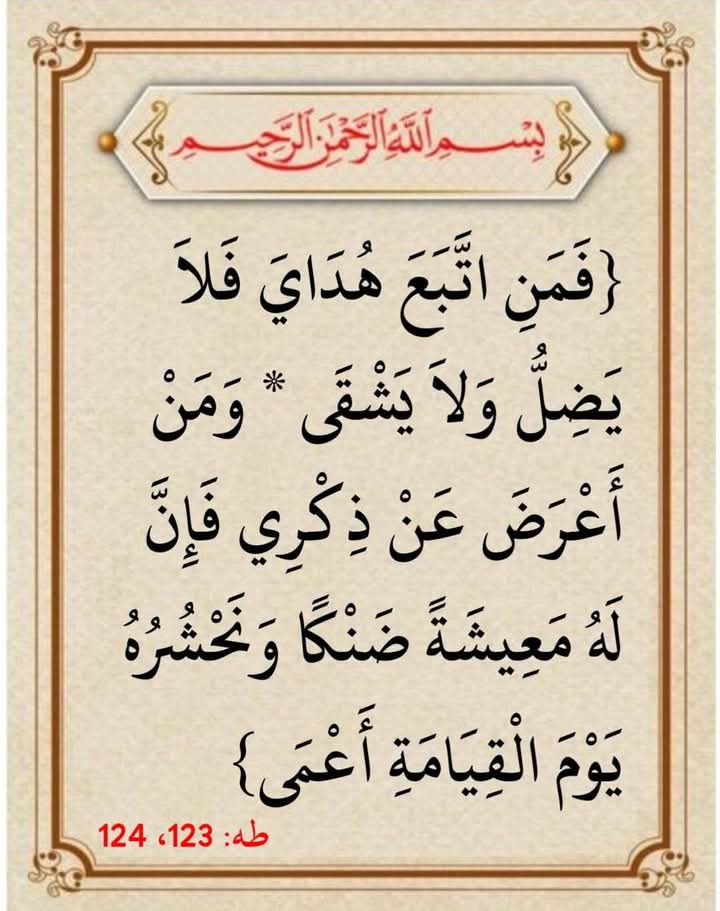 بِسْمِ ٱللَّهِ ٱلرَّحْمَٰنِ ٱلرَّحِيمِ
{فَمَنِ اتَّبَعَ هُدَايَ فَلاَ
يَضِلُّ وَلاَ يَشْقَى * وَمَنْ
أَعْرَضَ عَنْ ذِكْرِي فَإِنَّ
لَهُ مَعِيشَةً ضَنْكًا وَنَحْشُرُهُ
يَوْمَ الْقِيَامَةِ أَعْمَى}
طه: 123، 124